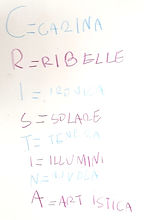 C=CARINA
R=RIBELLE
I=IRONICA
S=SOLARE
T=TENERA
I=ILLUMINI
N=
A=ARTISTICA